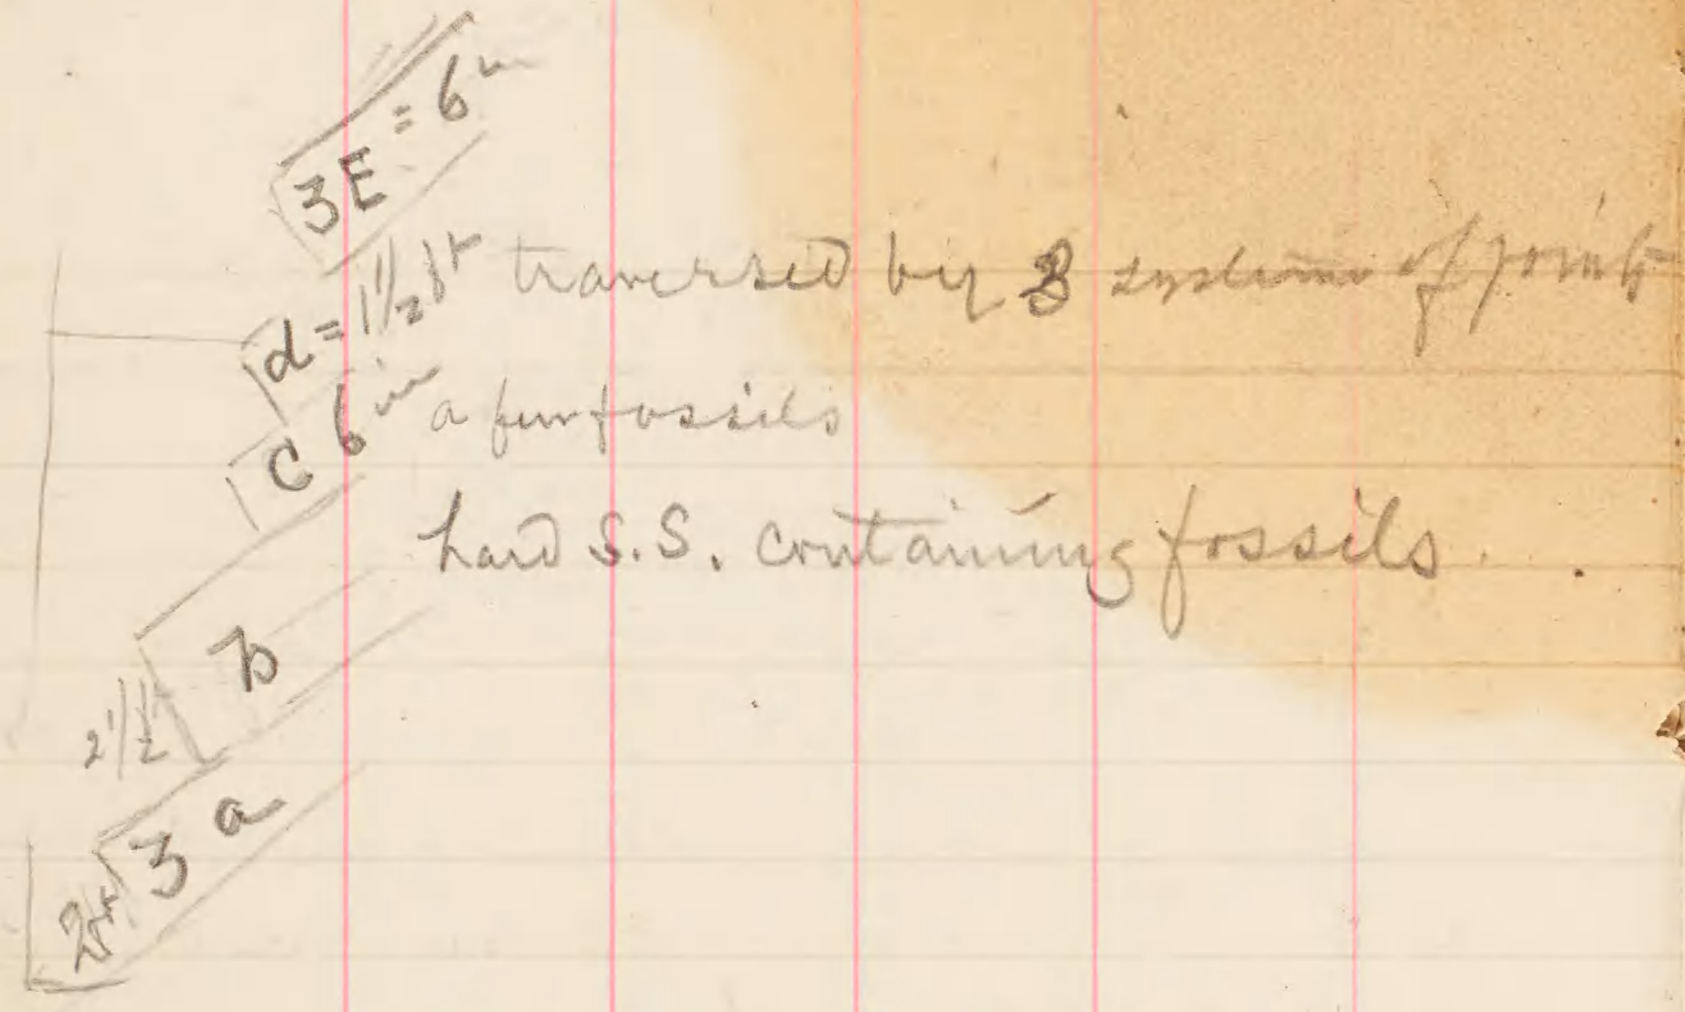 3E = 6 in
d = 1 1/2 ft traversed by 3 systems of joints
C 6 in a few fossils
hard S.S. containing fossils.
b
2 1/2
3 a
2 ft